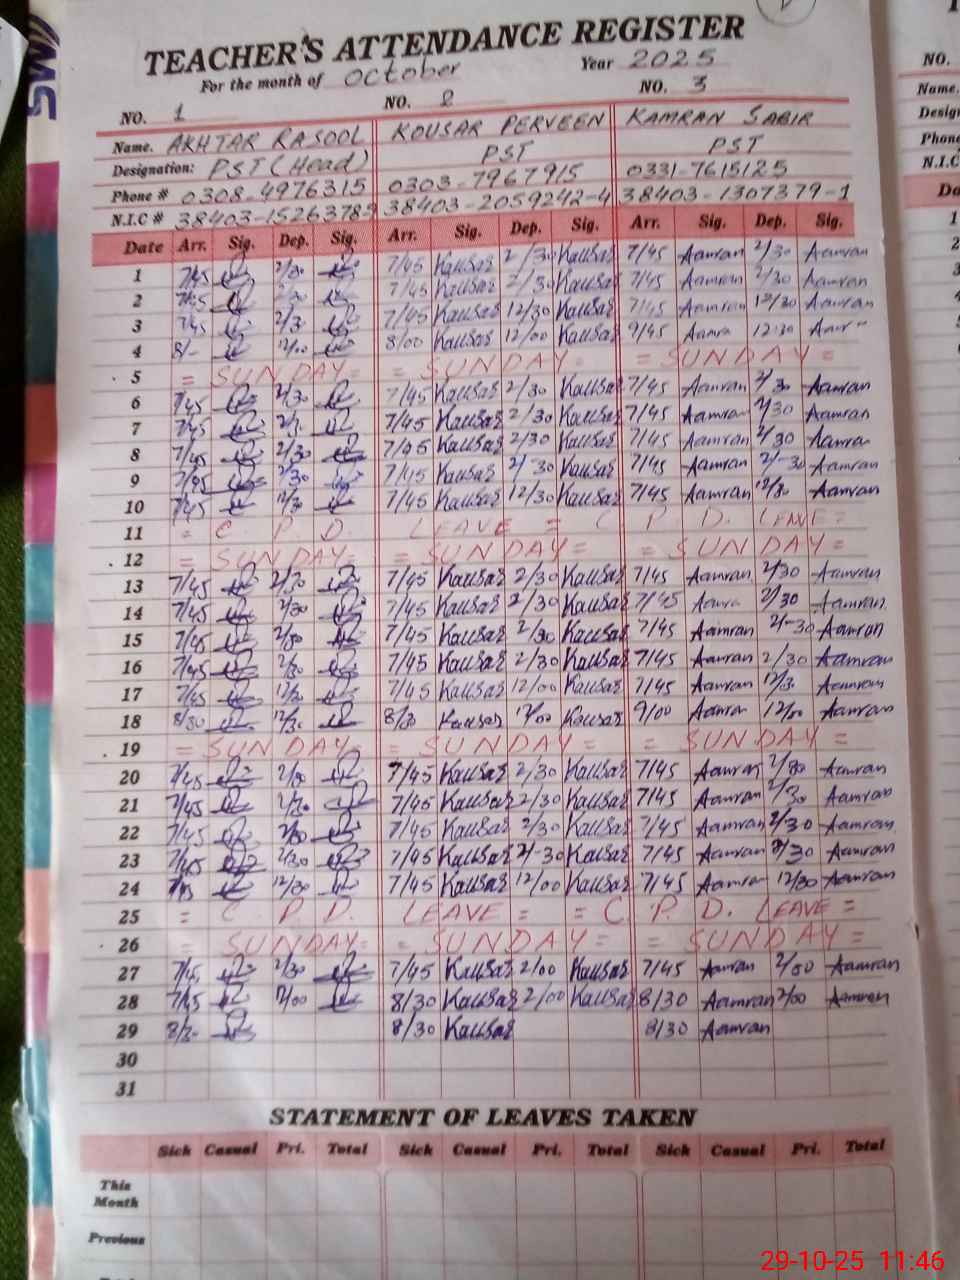 TEACHER'S ATTENDANCE REGISTER
For the month of October Year 2025
NO. 1 NO. 2 NO. 3
Name. AKHTAR RASOOL KOUSAR PERVEEN KAMRAN SABIR
Designation: PST (Head) PST PST
Phone # 0308-4976315 0303-7967915 0331-7615125
N.I.C # 38403-15263789 38403-2059242-4 38403-1307379-1
Date Arr. Sig. Dep. Sig. Arr. Sig. Dep. Sig. Arr. Sig. Dep. Sig.
1 7/45 2/30 7/45 Kausar 2/30 Kausar 7/45 Aamran 2/30 Aamran
2 7/45 7/45 Kausar 2/30 Kausar 7/45 Aamran 2/30 Aamran
3 7/45 2/3 7/45 Kausar 12/30 Kausar 7/45 Aamran 12/30 Aamran
4 8/- 12/00 8/00 Kausar 12/00 Kausar 9/45 Aamra 12:30
5 = SUNDAY = = SUNDAY = = SUNDAY =
6 7/45 2/30 7/45 Kausar 2/30 Kausar 7/45 Aamran 2/30 Aamran
7 7/45 7/45 Kausar 2/30 Kausar 7/45 Aamran 2/30 Aamran
8 7/45 2/30 7/45 Kausar 2/30 Kausar 7/45 Aamran 2/30 Aamran
9 7/45 2/30 7/45 Kausar 2/-30 Kausar 7/45 Aamran 2/-30 Aamran
10 7/45 12/3 7/45 Kausar 12/30 Kausar 7/45 Aamran 12/30 Aamran
11 = C. P. D. LEAVE = C P. D. LEAVE =
12 = SUNDAY = = SUNDAY = = SUNDAY =
13 7/45 2/30 7/45 Kausar 2/30 Kausar 7/45 Aamran 2/30 Aamran
14 7/45 2/30 7/45 Kausar 2/30 Kausar 7/45 Aamra 2/30 Aamran
15 7/45 2/30 7/45 Kausar 2/30 Kausar 7/45 Aamran 2/-30 Aamran
16 7/45 2/30 7/45 Kausar 2/30 Kausar 7/45 Aamran 2/30 Aamran
17 7/45 12/30 7/45 Kausar 12/00 Kausar 7/45 Aamran 12/3 Aamran
18 8/30 12/30 8/3 Kausar 12/00 Kausar 9/00 Aamran 12/00 Aamran
19 = SUNDAY = = SUNDAY = = SUNDAY =
20 7/45 2/30 7/45 Kausar 2/30 Kausar 7/45 Aamran 2/30 Aamran
21 7/45 2/30 7/45 Kausar 2/30 Kausar 7/45 Aamran 2/30 Aamran
22 7/45 2/30 7/45 Kausar 2/30 Kausar 7/45 Aamran 2/30 Aamran
23 7/45 2/30 7/45 Kausar 2/-30 Kausar 7/45 Aamran 2/30 Aamran
24 12/30 7/45 Kausar 12/00 Kausar 7/45 Aamran 12/30 Aamran
25 = C. P. D. LEAVE = = C. P. D. LEAVE =
26 = SUNDAY = = SUNDAY = = SUNDAY =
27 7/45 2/30 7/45 Kausar 2/00 Kausar 7/45 Aamran 2/00 Aamran
28 7/45 12/00 8/30 Kausar 2/00 Kausar 8/30 Aamran 2/00 Aamran
29 8/30 8/30 Kausar 8/30 Aamran
30
31
STATEMENT OF LEAVES TAKEN
Sick Casual Pri. Total Sick Casual Pri. Total Sick Casual Pri. Total
This Month
Previous
NO.
Name.
N.I.C
1
2
3
29-10-25 11:46